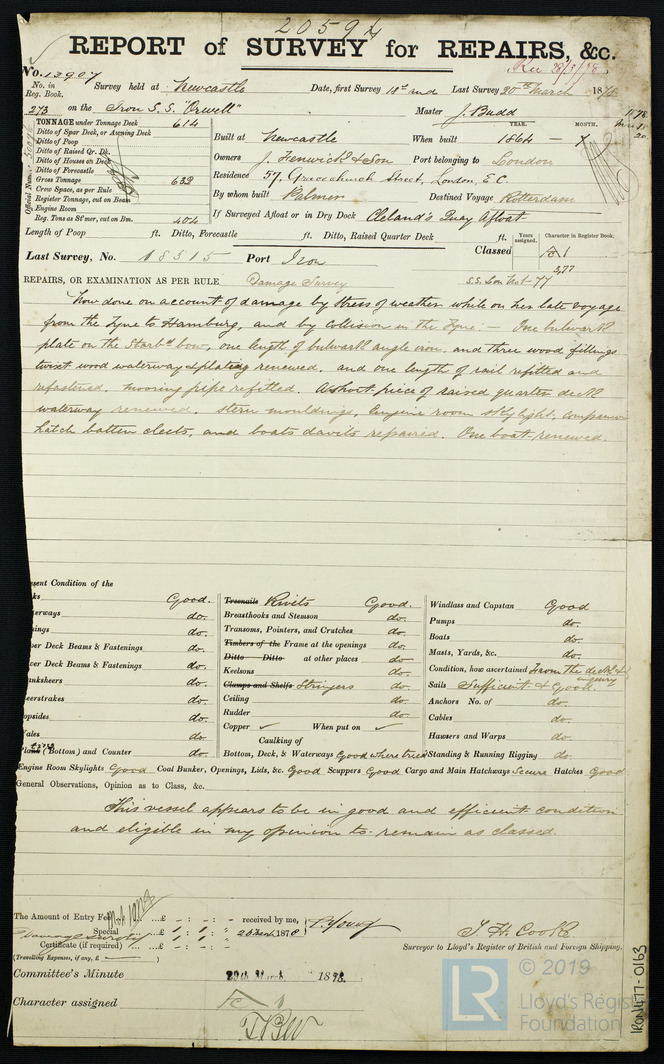 20594
REPORT of SURVEY for REPAIRS, &c.
No. 12907 Survey held at Newcastle Date, first Survey 18th and Last Survey 20th March 1878
Rec 28/3/78
No. in Reg. Book.
273 on the Iron S.S. "Orwell" Master J. Budd
TONNAGE under Tonnage Deck 614
Ditto of Spar Deck, or Awning Deck
Ditto of Poop
Ditto of Raised Qr. Dk.
Ditto of Houses on Deck
Ditto of Forecastle
Gross Tonnage 632
Crew Space, as per Rule
Register Tonnage, cut on Beam
Engine Room
Reg. Tons as St'mer, cut on Bm. 404
Official Number
Built at Newcastle When built YEAR. 1864 MONTH. 7
Owners J. Fenwick & Son Port belonging to London
Residence 57, Gracechurch Street, London, E.C.
By whom built Palmer Destined Voyage Rotterdam
If Surveyed Afloat or in Dry Dock Cleland's Quay Afloat
Length of Poop ft. Ditto, Forecastle ft. Ditto, Raised Quarter Deck ft.
Years assigned. Character in Register Book.
Last Survey, No. 18515 Port Iron Classed A1
3,77
REPAIRS, OR EXAMINATION AS PER RULE Damage Survey S.S. Lon No1-77
Now done on account of damage by stress of weather while on her late voyage
from the Tyne to Hamburg, and by collision in the Tyne :— One bulwark
plate on the Starbd bow, one length of bulwark angle iron, and three wood fillings
twixt wood waterway & plating renewed, and one length of rail refitted and
refastened, mooring pipe refitted. A short piece of raised quarter deck
waterway renewed. stern mouldings, Engine room skylight, companion
hatch batten cleets, and boats davits repaired. One boat renewed.
esent Condition of the
ks Good.
erways do.
ings do.
per Deck Beams & Fastenings do.
wer Deck Beams & Fastenings do.
anksheers do.
eerstrakes do.
opsides do.
ales do.
Plank (Bottom) and Counter do.
Treenails Rivits Good.
Breasthooks and Stemson do.
Transoms, Pointers, and Crutches do.
Timbers of the Frame at the openings do.
Ditto Ditto at other places do
Keelsons do.
Clamps and Shelfs Stringers do.
Ceiling do.
Rudder do.
Copper When put on
Caulking of
Bottom, Deck, & Waterways Good where tried
Windlass and Capstan Good
Pumps do.
Boats do.
Masts, Yards, &c. do.
Condition, how ascertained From the deck & inquiry
Sails Sufficient & Good.
Anchors No. of do.
Cables do.
Hawsers and Warps do.
Standing & Running Rigging do.
Engine Room Skylights Good Coal Bunker, Openings, Lids, &c. Good Scuppers Good Cargo and Main Hatchways Secure Hatches Good
General Observations, Opinion as to Class, &c.
This vessel appears to be in good and efficient condition
and eligible in my opinion to remain as classed.
The Amount of Entry Fee ...£ - : - : - received by me,
Special ...£ 1 : 1 : - 1878
Damage Survey
Certificate (if required) ...£ - : - : -
(Travelling Expenses, if any, £ )
T. H. Cooke
Surveyor to Lloyd's Register of British and Foreign Shipping.
Committee's Minute 29th March 1878.
Character assigned
LR
© 2019
Lloyd's Register
Foundation
IRON477-0163